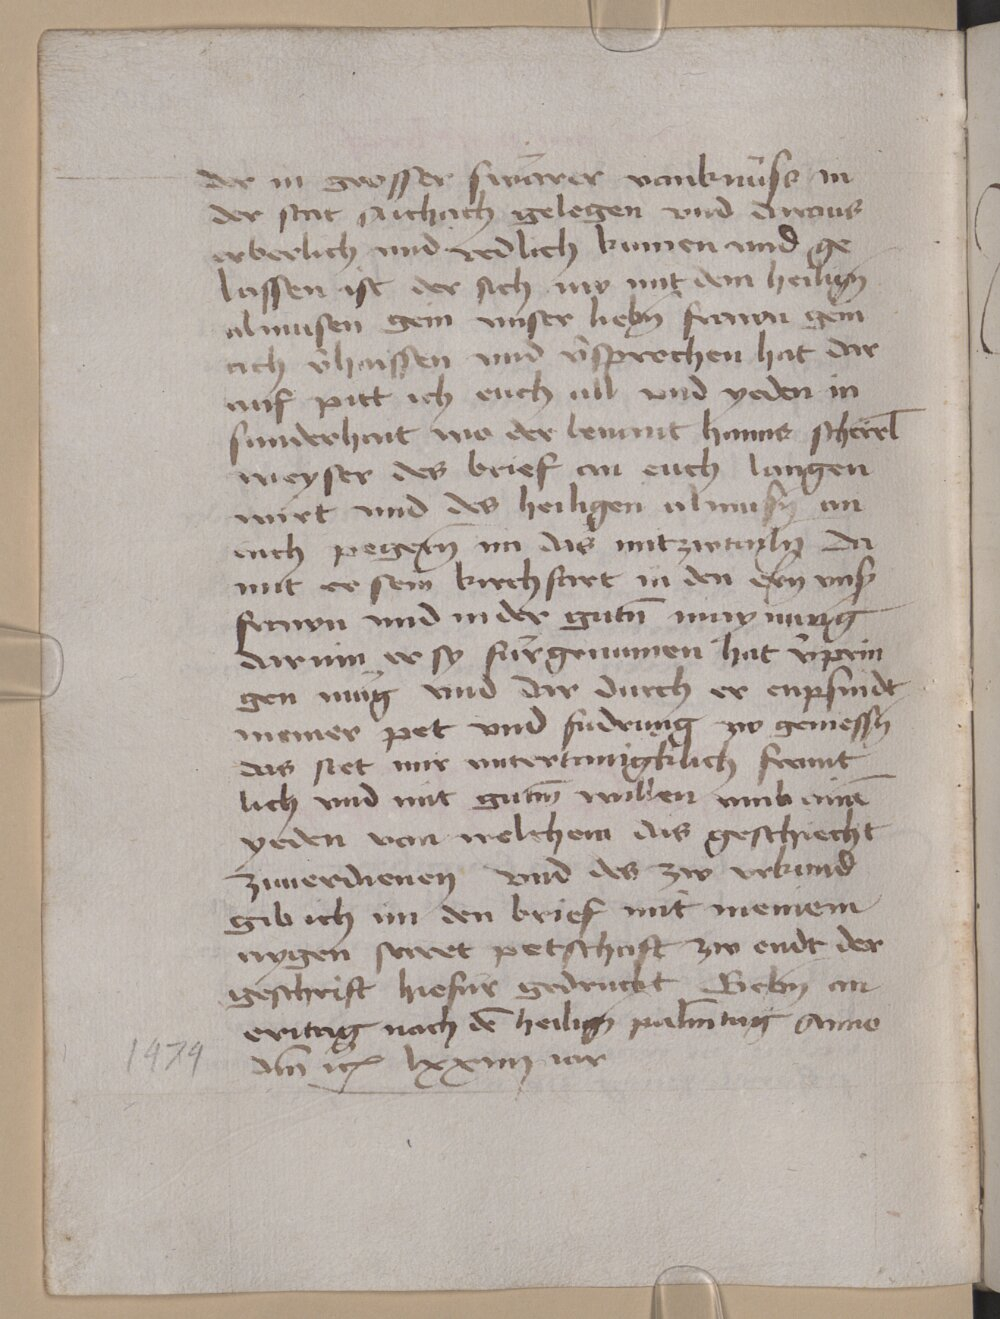 der in grosser swärer vanknüss in
der stat Aichach gelegen und daraus
erberlich und redlich kumen und ge
lassen ist der sich nw mit dem heilign
almusen gein unser liebn frawn gein
ach v̄haissen und v̄sprochen hat dar
auf pitt ich euch all und yeden in
sunderhait wo der benant hanns scherel
weyser des brief an euch langen
wirt und des heiligen almusn an
euch pegern im das mitzwtailn da
mit er sein kirchfart in den ern unser
frawn und in der gutn̄ maynung
darinn er sy fürgenumen hat v̄prin
gen müg und dar durch er enpfindt
meiner pet und fudrung zw geniessn
das stet mir untertanigklich frunt
lich und mit gutm̄ willen umb ainē
yeden von welchem das geschiecht
zuuerdienen und des zw urkund
gib ich im den brief mit meinem
aygen secret petschaft zw endt der
geschrift hiefür gedruckt Gebn an
eritag nach dē heilign palm̄tag Anno
dn̄i lxxiiii iar
1474